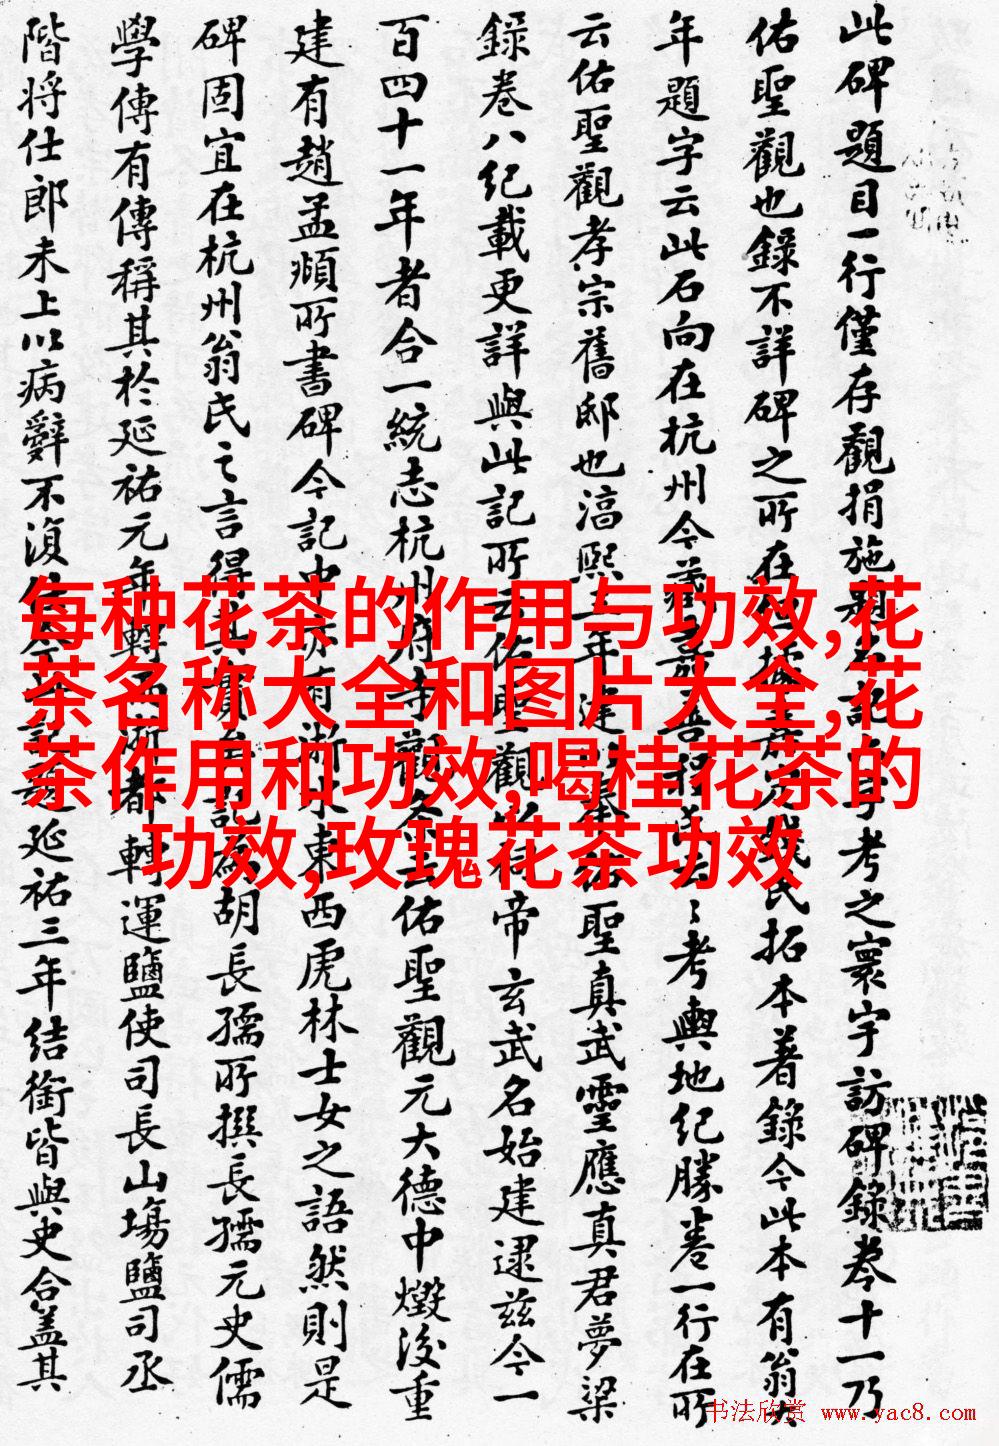 此碑題目一行僅存觀捐施題名記字考之寰宇訪碑錄卷十一乃
佑聖觀也錄不詳碑之所在據嘉定錢氏拓本著錄今此本有翁大
年題字云此石向在杭州今嘉善程氏云々考輿地紀勝卷一行在所
云佑聖觀孝宗舊邸也淳熙三年建以奉佑聖真武靈應真君夢梁
錄卷八紀載更詳與此記所云佑聖觀以祠帝玄武名始建逮兹今一
百四十一年者合一統志杭州府寺觀条云佑聖觀元大德中燬後重
建有趙孟頫所書碑今記中亦有浙水東西虎林士女之語然則是
碑固宜在杭州翁氏之言得其實矣記為胡長孺所撰長孺元史儒
學傳有傳稱其於延祐元年轉兩浙都轉運鹽使司長山場鹽司丞
階將仕郎未上以病辭不復仕今此記題延祐三年結銜皆與史合蓋其
每种花茶的作用与功效,花
茶名称大全和图片大全,花
茶作用和功效,喝桂花茶的
功效,玫瑰花茶功效
书法欣赏 www.yac8.com